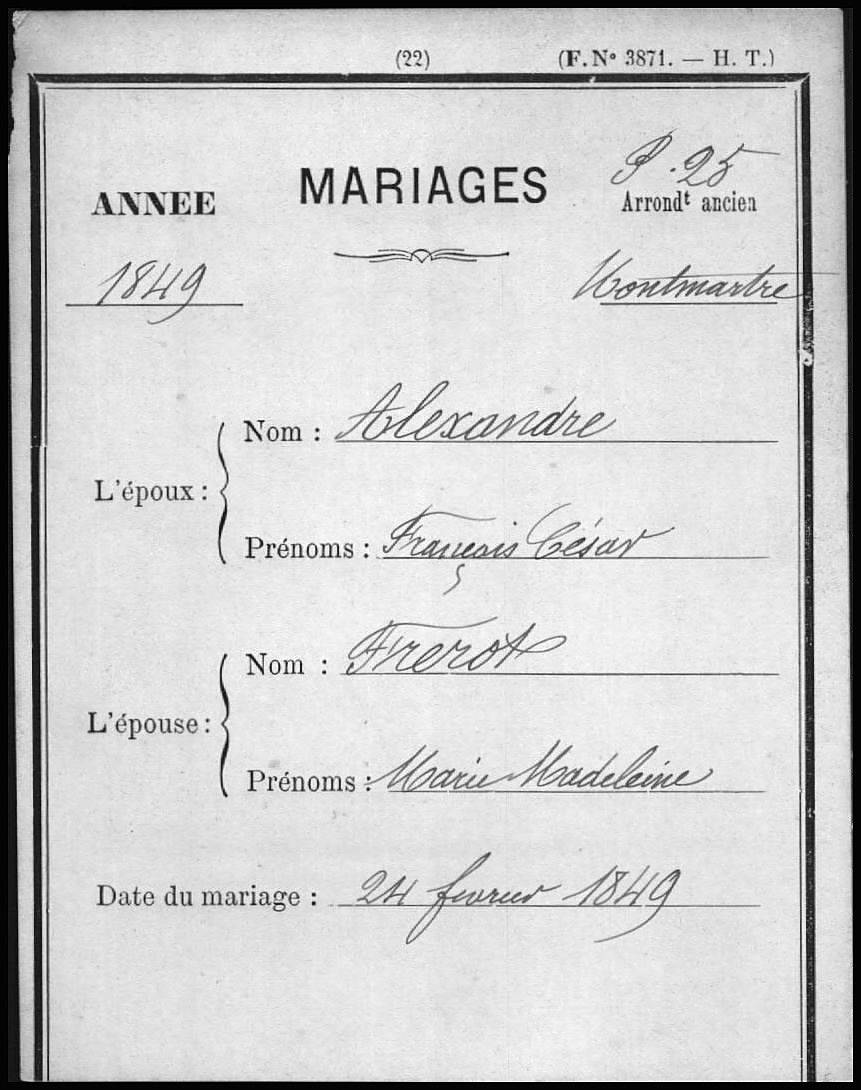 (22) (F. Nº 3871. — H. T.)
P. 25
ANNEE MARIAGES Arrondt ancien
1849 Montmartre
L'époux :
Nom : Alexandre
Prénoms : François César
L'épouse :
Nom : Frerot
Prénoms : Marie Madeleine
Date du mariage : 24 fevrier 1849